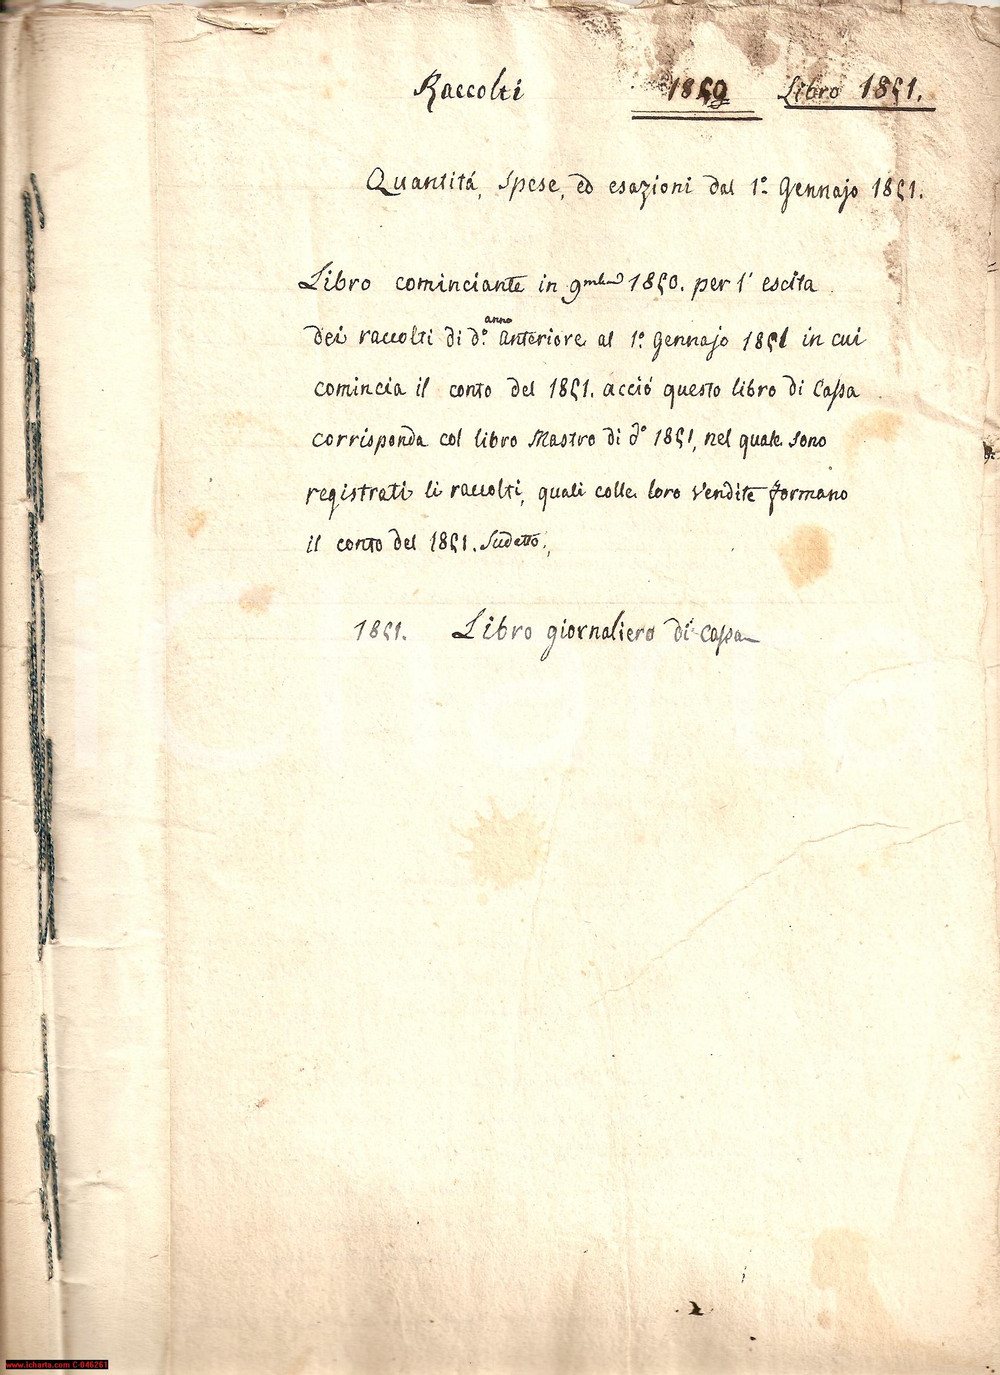 Raccolti 1850 Libro 1851.
Quantitá, Spese, ed esazioni dal 1.º Gennajo 1851.
Libro cominciante in 9mbre 1850. per l'escita
dei raccolti di d.º anno anteriore al 1.º Gennajo 1851 in cui
comincia il conto del 1851. acció questo libro di Cassa
corrisponda col libro Mastro di d.º 1851, nel quale sono
registrati li raccolti, quali colle loro vendite formano
il conto del 1851. Sudetto.
1851. Libro giornaliero di cassa
www.icharta.com C-046261